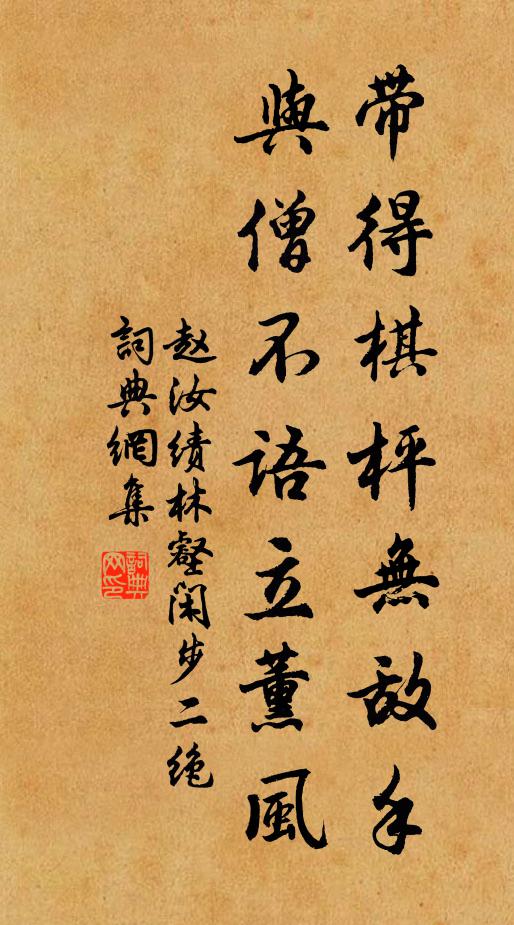 帶得棋枰無敌手
與僧不语立薰風
赵汝绩林壑闲步二绝
詞典網集
詞典
网印